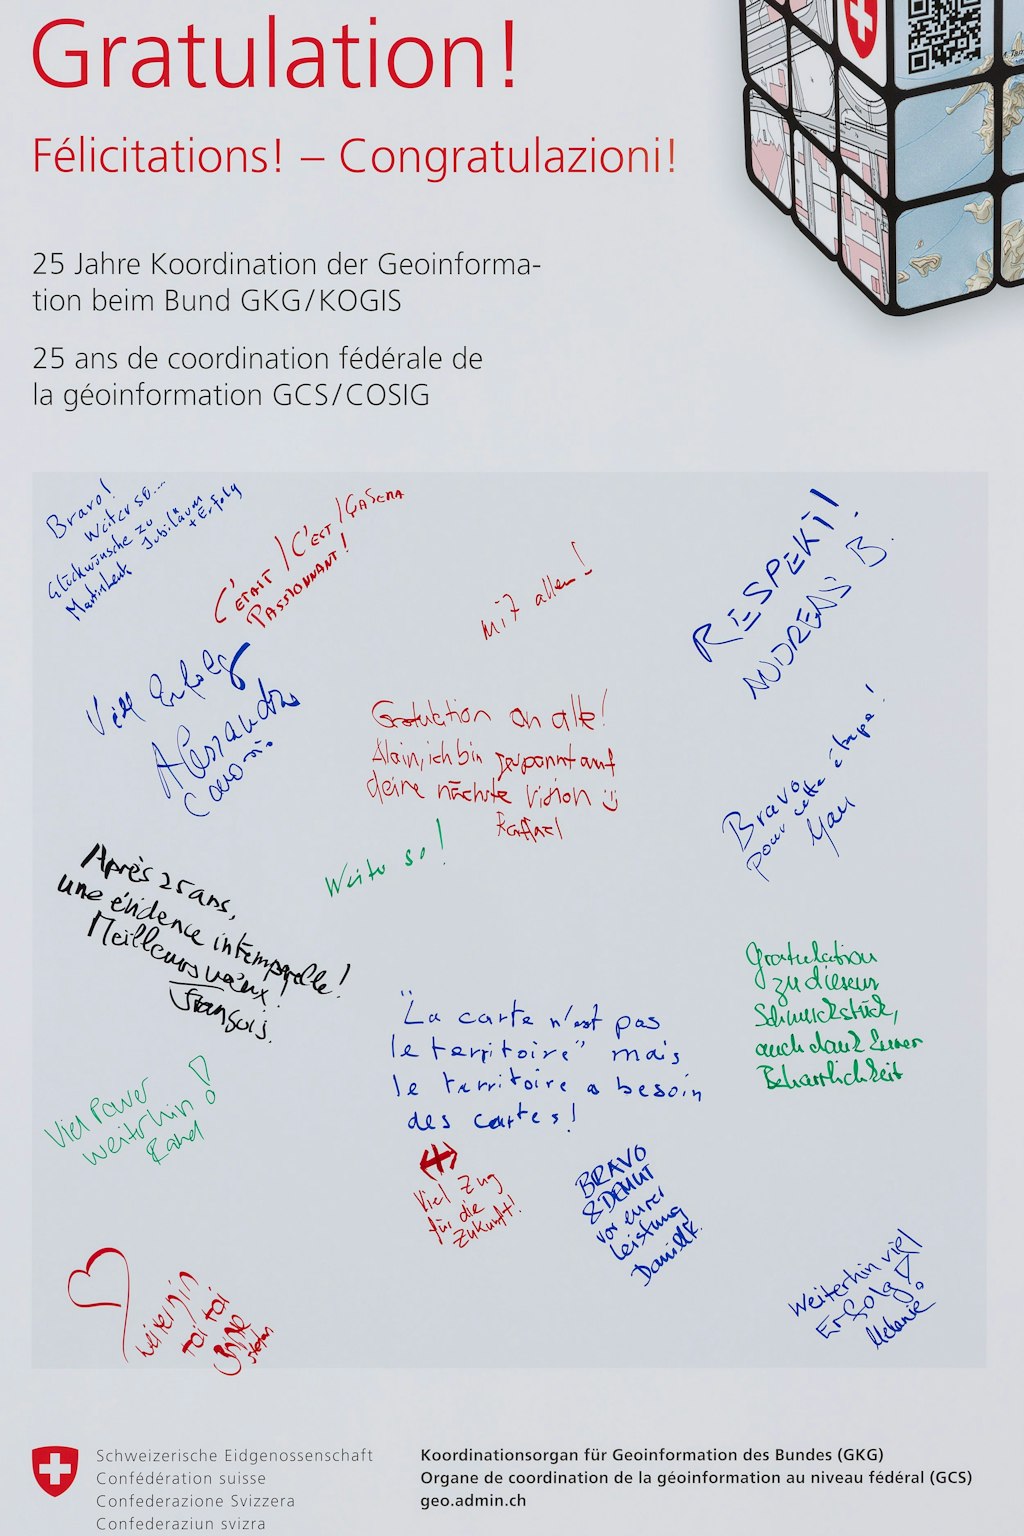 Gratulation!
Félicitations! – Congratulazioni!
25 Jahre Koordination der Geoinforma-
tion beim Bund GKG/KOGIS
25 ans de coordination fédérale de
la géoinformation GCS/COSIG
Bravo!
Weiter so...
Glückwünsche zu
Jubiläum
+ Erfolg
C'ÉTAIT / C'EST / ÇA SERA
PASSIONNANT!
Mit allem!
RESPEKT!
ANDREAS B.
Viel Erfolg
Alessandro
Gratulation an alle!
Alain, ich bin gespannt auf
deine nächste Vision
Raffael
Bravo
pour cette étape!
Weiter so!
Après 25 ans,
une évidence intemporelle!
Meilleurs vœux!
François.
Gratulation
zu diesem
Schmuckstück,
auch dank Eurer
Beharrlichkeit
"La carte n'est pas
le territoire" mais
le territoire a besoin
des cartes!
Viel Power
weiterhin!
Viel Zug
für die
Zukunft!
BRAVO
& DEMUT
vor eurer
Leistung
Weiterhin viel
Erfolg!
Melanie
toi toi
Stefan
Schweizerische Eidgenossenschaft
Confédération suisse
Confederazione Svizzera
Confederaziun svizra
Koordinationsorgan für Geoinformation des Bundes (GKG)
Organe de coordination de la géoinformation au niveau fédéral (GCS)
geo.admin.ch